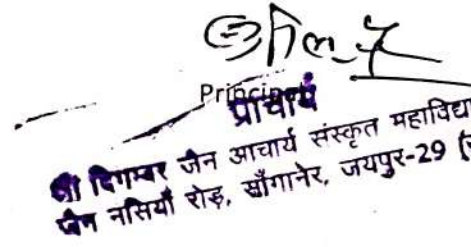 Principal
प्राचार्य
श्री दिगम्बर जैन आचार्य संस्कृत महाविद्या
जैन नसियाँ रोड़, साँगानेर, जयपुर-29 (